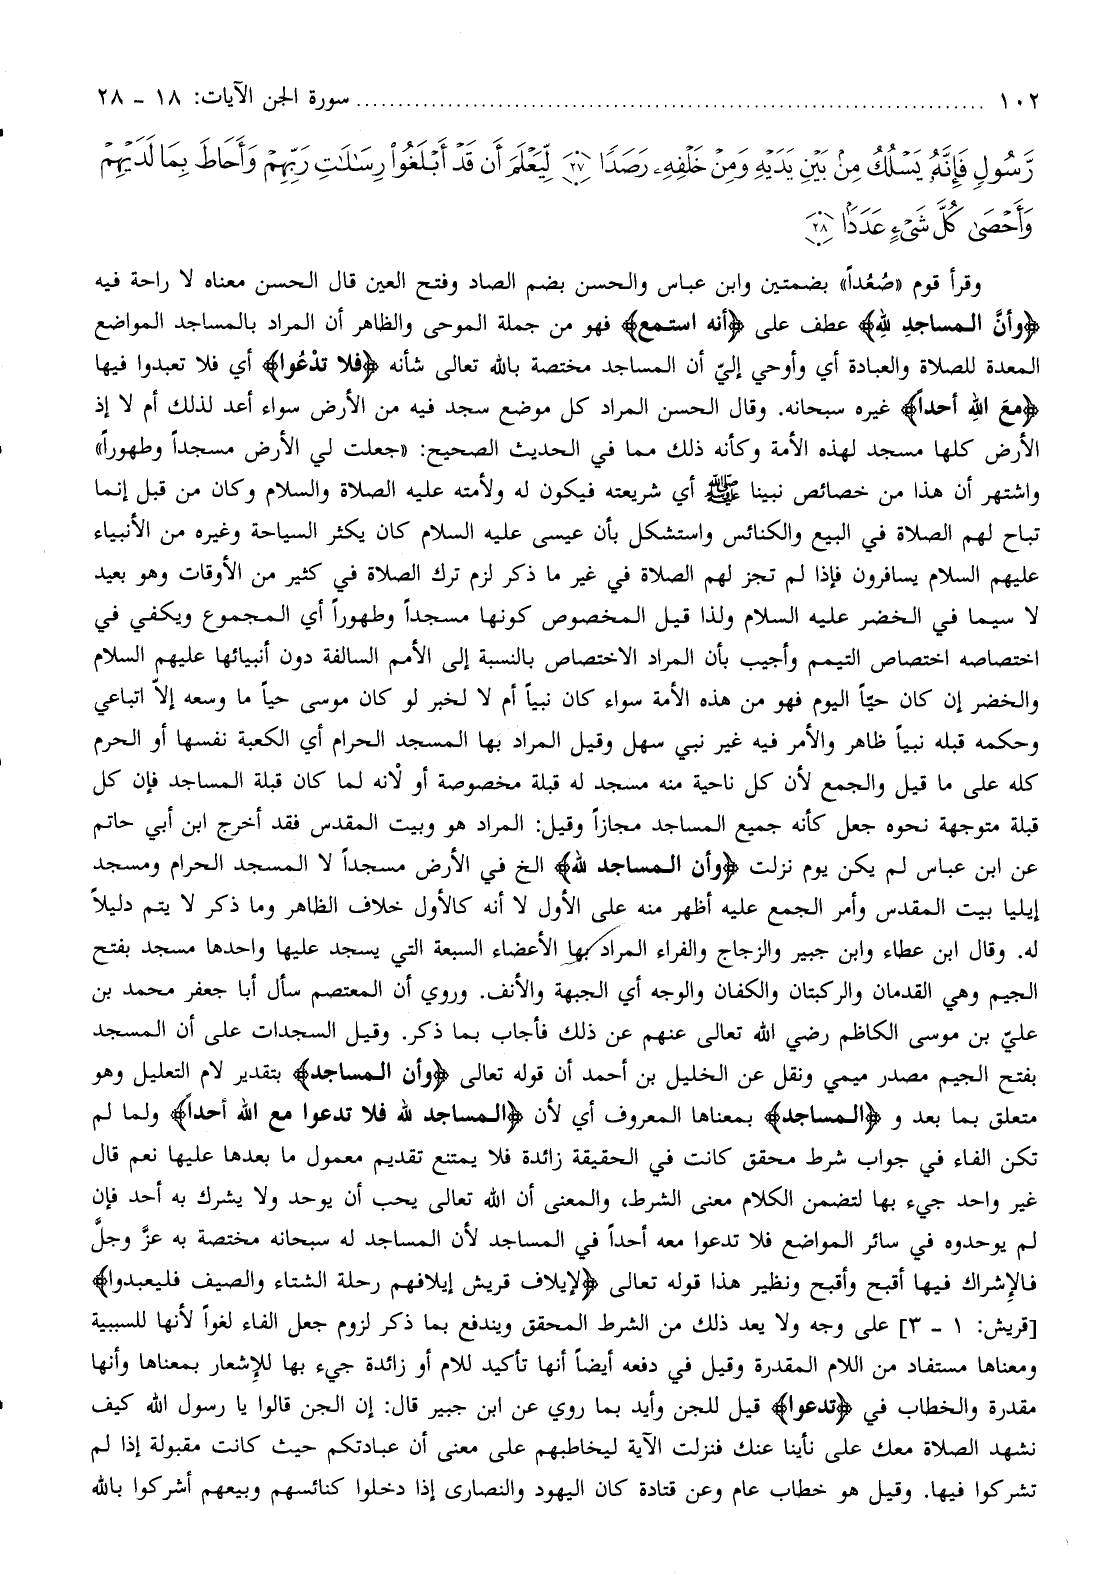 ١٠٢ ............ سورة الجن الآيات: ١٨ - ٢٨
رَّسُولٍ فَإِنَّهُۥ يَسْلُكُ مِنۢ بَيْنِ يَدَيْهِ وَمِنْ خَلْفِهِۦ رَصَدًا ۝٢٧ لِّيَعْلَمَ أَن قَدْ أَبْلَغُوا۟ رِسَٰلَٰتِ رَبِّهِمْ وَأَحَاطَ بِمَا لَدَيْهِمْ
وَأَحْصَىٰ كُلَّ شَىْءٍ عَدَدًۢا ۝٢٨
وقرأ قوم «صُعُداً» بضمتين وابن عباس والحسن بضم الصاد وفتح العين قال الحسن معناه لا راحة فيه
﴿وأنَّ المساجدِ للهِ﴾ عطف على ﴿أنه استمع﴾ فهو من جملة الموحى والظاهر أن المراد بالمساجد المواضع
المعدة للصلاة والعبادة أي وأوحي إليّ أن المساجد مختصة بالله تعالى شأنه ﴿فلا تدْعُوا﴾ أي فلا تعبدوا فيها
﴿معَ اللهِ أحداً﴾ غيره سبحانه. وقال الحسن المراد كل موضع سجد فيه من الأرض سواء أعد لذلك أم لا إذ
الأرض كلها مسجد لهذه الأمة وكأنه ذلك مما في الحديث الصحيح: «جعلت لي الأرض مسجداً وطهوراً»
واشتهر أن هذا من خصائص نبينا ﷺ أي شريعته فيكون له ولأمته عليه الصلاة والسلام وكان من قبل إنما
تباح لهم الصلاة في البيع والكنائس واستشكل بأن عيسى عليه السلام كان يكثر السياحة وغيره من الأنبياء
عليهم السلام يسافرون فإذا لم تجز لهم الصلاة في غير ما ذكر لزم ترك الصلاة في كثير من الأوقات وهو بعيد
لا سيما في الخضر عليه السلام ولذا قيل المخصوص كونها مسجداً وطهوراً أي المجموع ويكفي في
اختصاصه اختصاص التيمم وأجيب بأن المراد الاختصاص بالنسبة إلى الأمم السالفة دون أنبيائها عليهم السلام
والخضر إن كان حيّاً اليوم فهو من هذه الأمة سواء كان نبياً أم لا لخبر لو كان موسى حياً ما وسعه إلاّ اتباعي
وحكمه قبله نبياً ظاهر والأمر فيه غير نبي سهل وقيل المراد بها المسجد الحرام أي الكعبة نفسها أو الحرم
كله على ما قيل والجمع لأن كل ناحية منه مسجد له قبلة مخصوصة أو لأنه لما كان قبلة المساجد فإن كل
قبلة متوجهة نحوه جعل كأنه جميع المساجد مجازاً وقيل: المراد هو وبيت المقدس فقد أخرج ابن أبي حاتم
عن ابن عباس لم يكن يوم نزلت ﴿وأن المساجد لله﴾ الخ في الأرض مسجداً لا المسجد الحرام ومسجد
إيليا بيت المقدس وأمر الجمع عليه أظهر منه على الأول لا أنه كالأول خلاف الظاهر وما ذكر لا يتم دليلاً
له. وقال ابن عطاء وابن جبير والزجاج والفراء المراد بها الأعضاء السبعة التي يسجد عليها واحدها مسجد بفتح
الجيم وهي القدمان والركبتان والكفان والوجه أي الجبهة والأنف. وروي أن المعتصم سأل أبا جعفر محمد بن
عليّ بن موسى الكاظم رضي الله تعالى عنهم عن ذلك فأجاب بما ذكر. وقيل السجدات على أن المسجد
بفتح الجيم مصدر ميمي ونقل عن الخليل بن أحمد أن قوله تعالى ﴿وأن المساجد﴾ بتقدير لام التعليل وهو
متعلق بما بعد و ﴿المساجد﴾ بمعناها المعروف أي لأن ﴿المساجد لله فلا تدعوا مع الله أحداً﴾ ولما لم
تكن الفاء في جواب شرط محقق كانت في الحقيقة زائدة فلا يمتنع تقديم معمول ما بعدها عليها نعم قال
غير واحد جيء بها لتضمن الكلام معنى الشرط، والمعنى أن الله تعالى يحب أن يوحد ولا يشرك به أحد فإن
لم يوحدوه في سائر المواضع فلا تدعوا معه أحداً في المساجد لأن المساجد له سبحانه مختصة به عزَّ وجلَّ
فالإشراك فيها أقبح وأقبح ونظير هذا قوله تعالى ﴿لإيلاف قريش إيلافهم رحلة الشتاء والصيف فليعبدوا﴾
[قريش: ١ - ٣] على وجه ولا يعد ذلك من الشرط المحقق ويندفع بما ذكر لزوم جعل الفاء لغواً لأنها للسببية
ومعناها مستفاد من اللام المقدرة وقيل في دفعه أيضاً أنها تأكيد للام أو زائدة جيء بها للإشعار بمعناها وأنها
مقدرة والخطاب في ﴿تدعوا﴾ قيل للجن وأيد بما روي عن ابن جبير قال: إن الجن قالوا يا رسول الله كيف
نشهد الصلاة معك على نأينا عنك فنزلت الآية ليخاطبهم على معنى أن عبادتكم حيث كانت مقبولة إذا لم
تشركوا فيها. وقيل هو خطاب عام وعن قتادة كان اليهود والنصارى إذا دخلوا كنائسهم وبيعهم أشركوا بالله